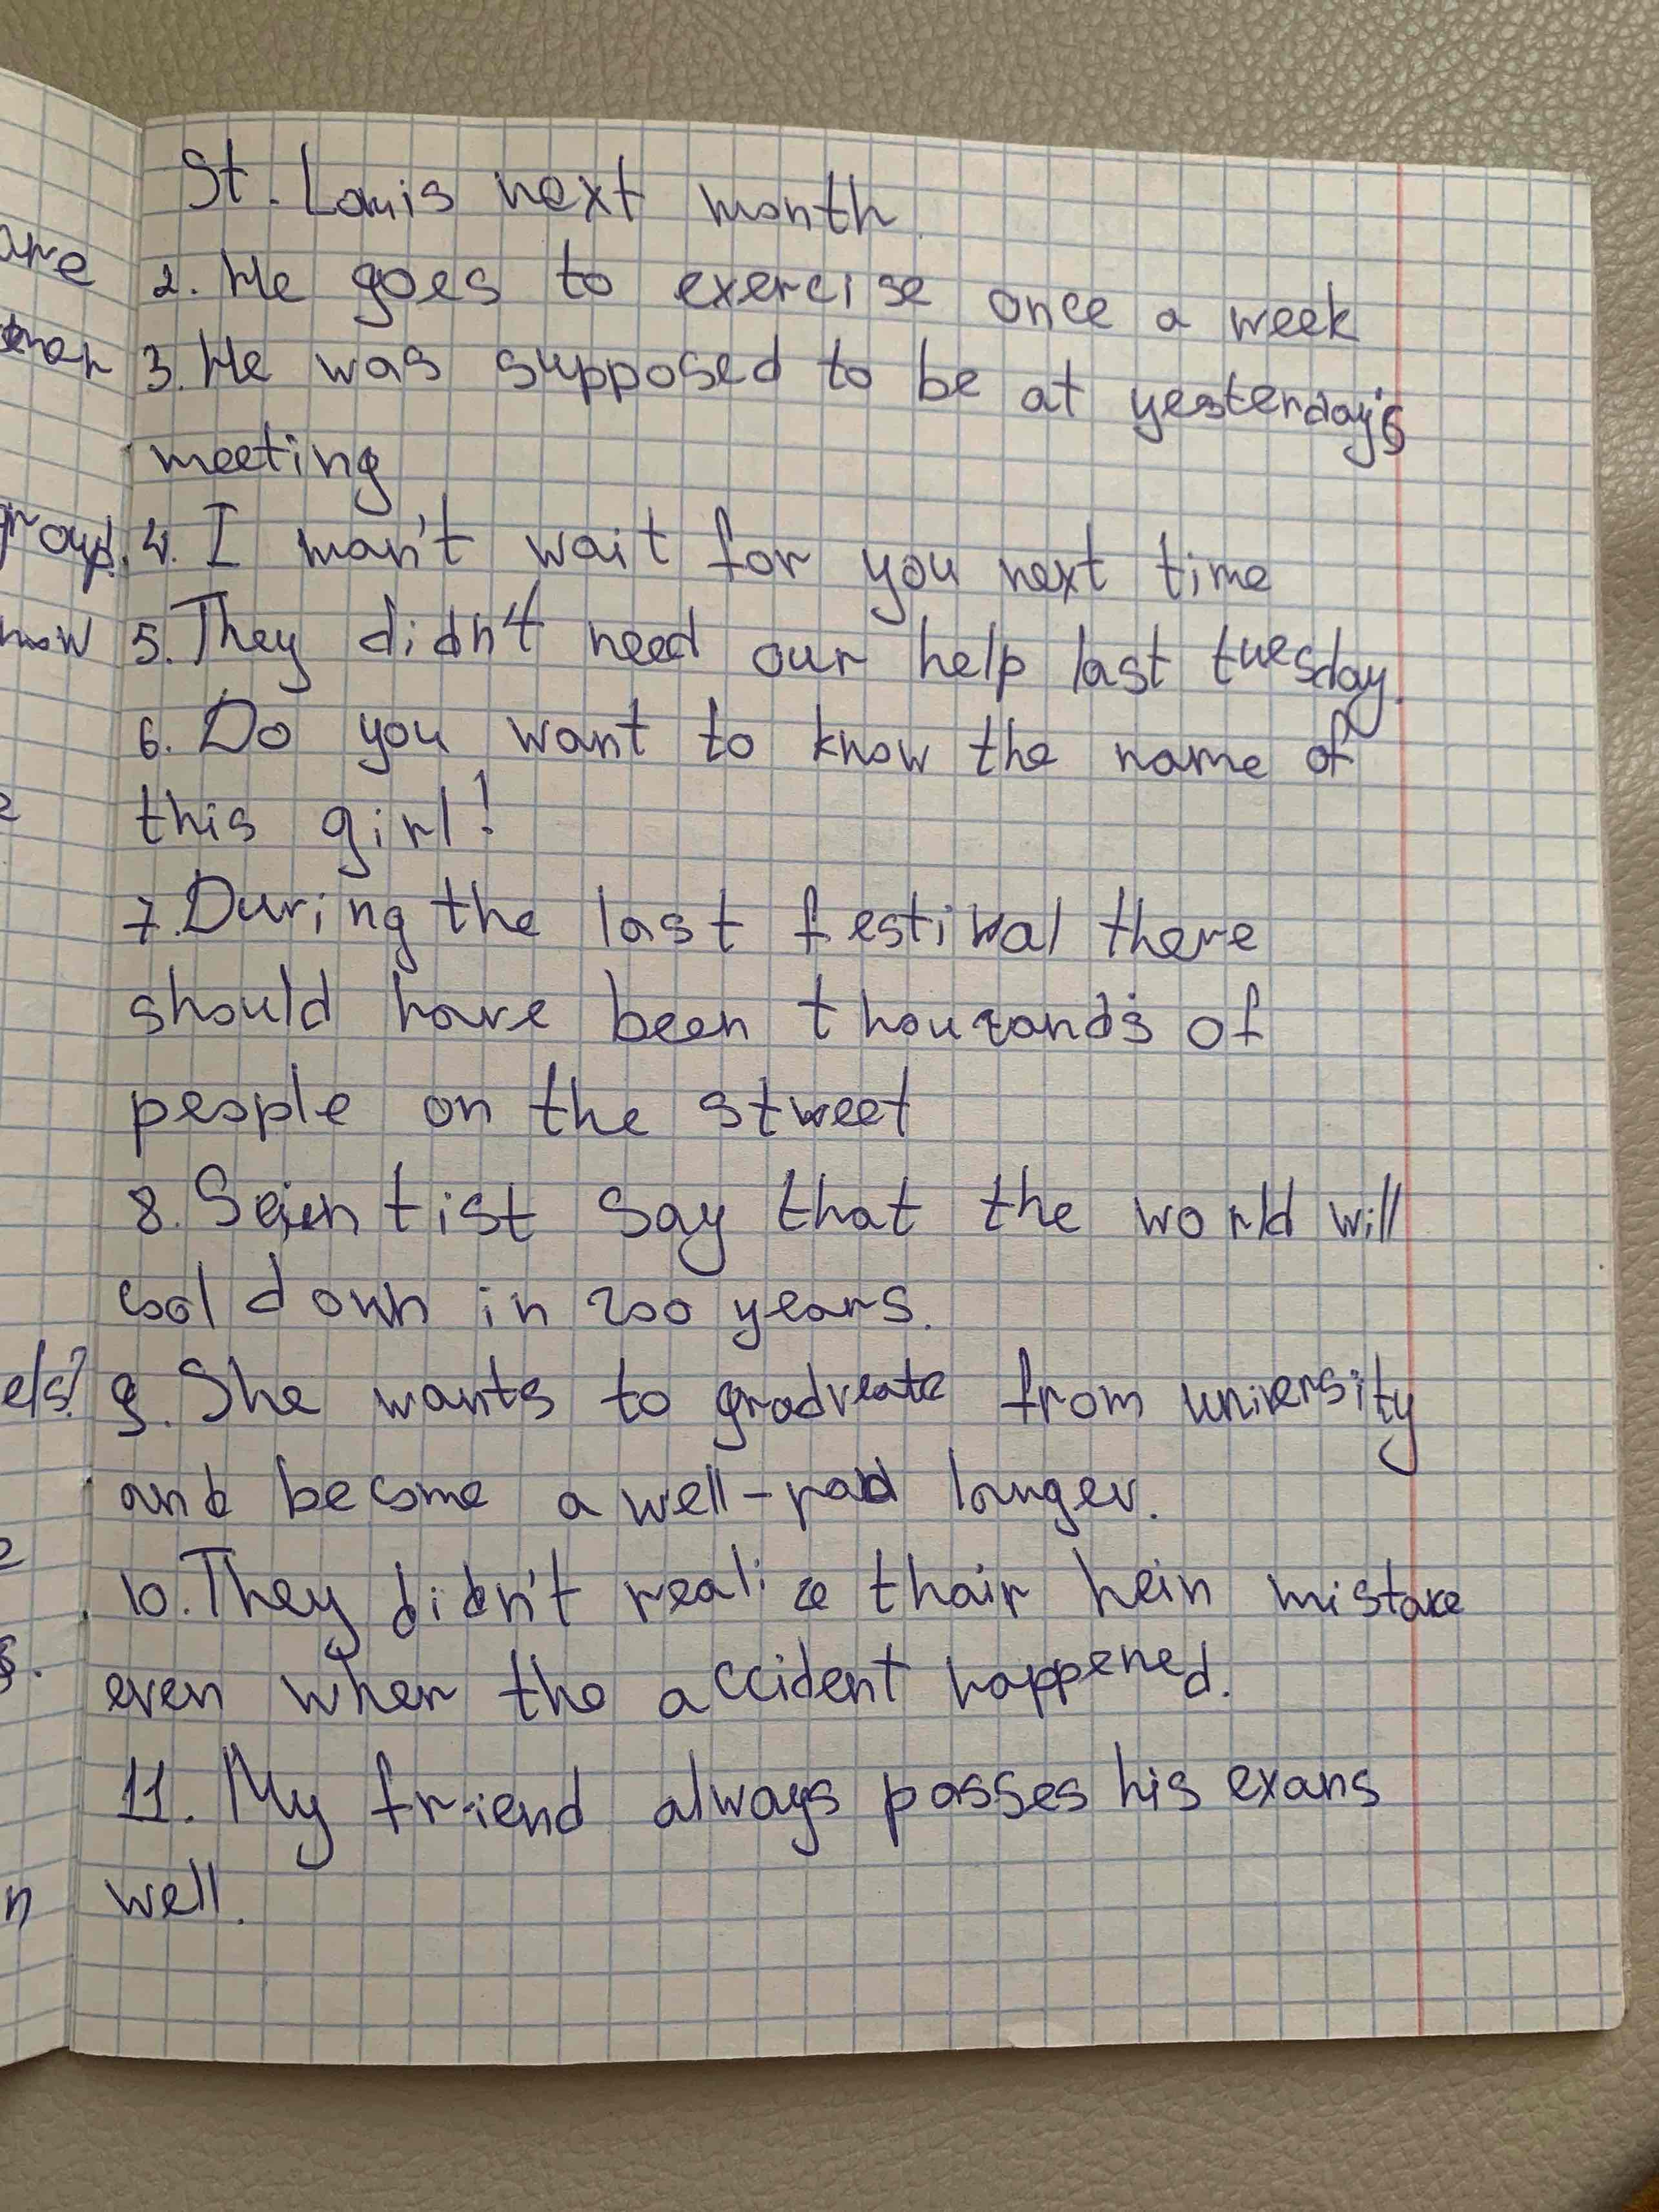 St. Louis next month.
are
2. He goes to exercise once a week
3. He was supposed to be at yesterday's
meeting
4. I wan't wait for you next time
now
5. They didn't need our help last tuesday.
6. Do you want to know the name of
this girl!
7. During the last festival there
should have been thouzand's of
people on the street
8. Scientist say that the world will
cool down in 200 years.
els?
9. She wants to gradveate from university
and become a well-paid
10. They didn't realize thair hein mistake
even when the accident happened.
11. My friend always passes his exans
n
well.